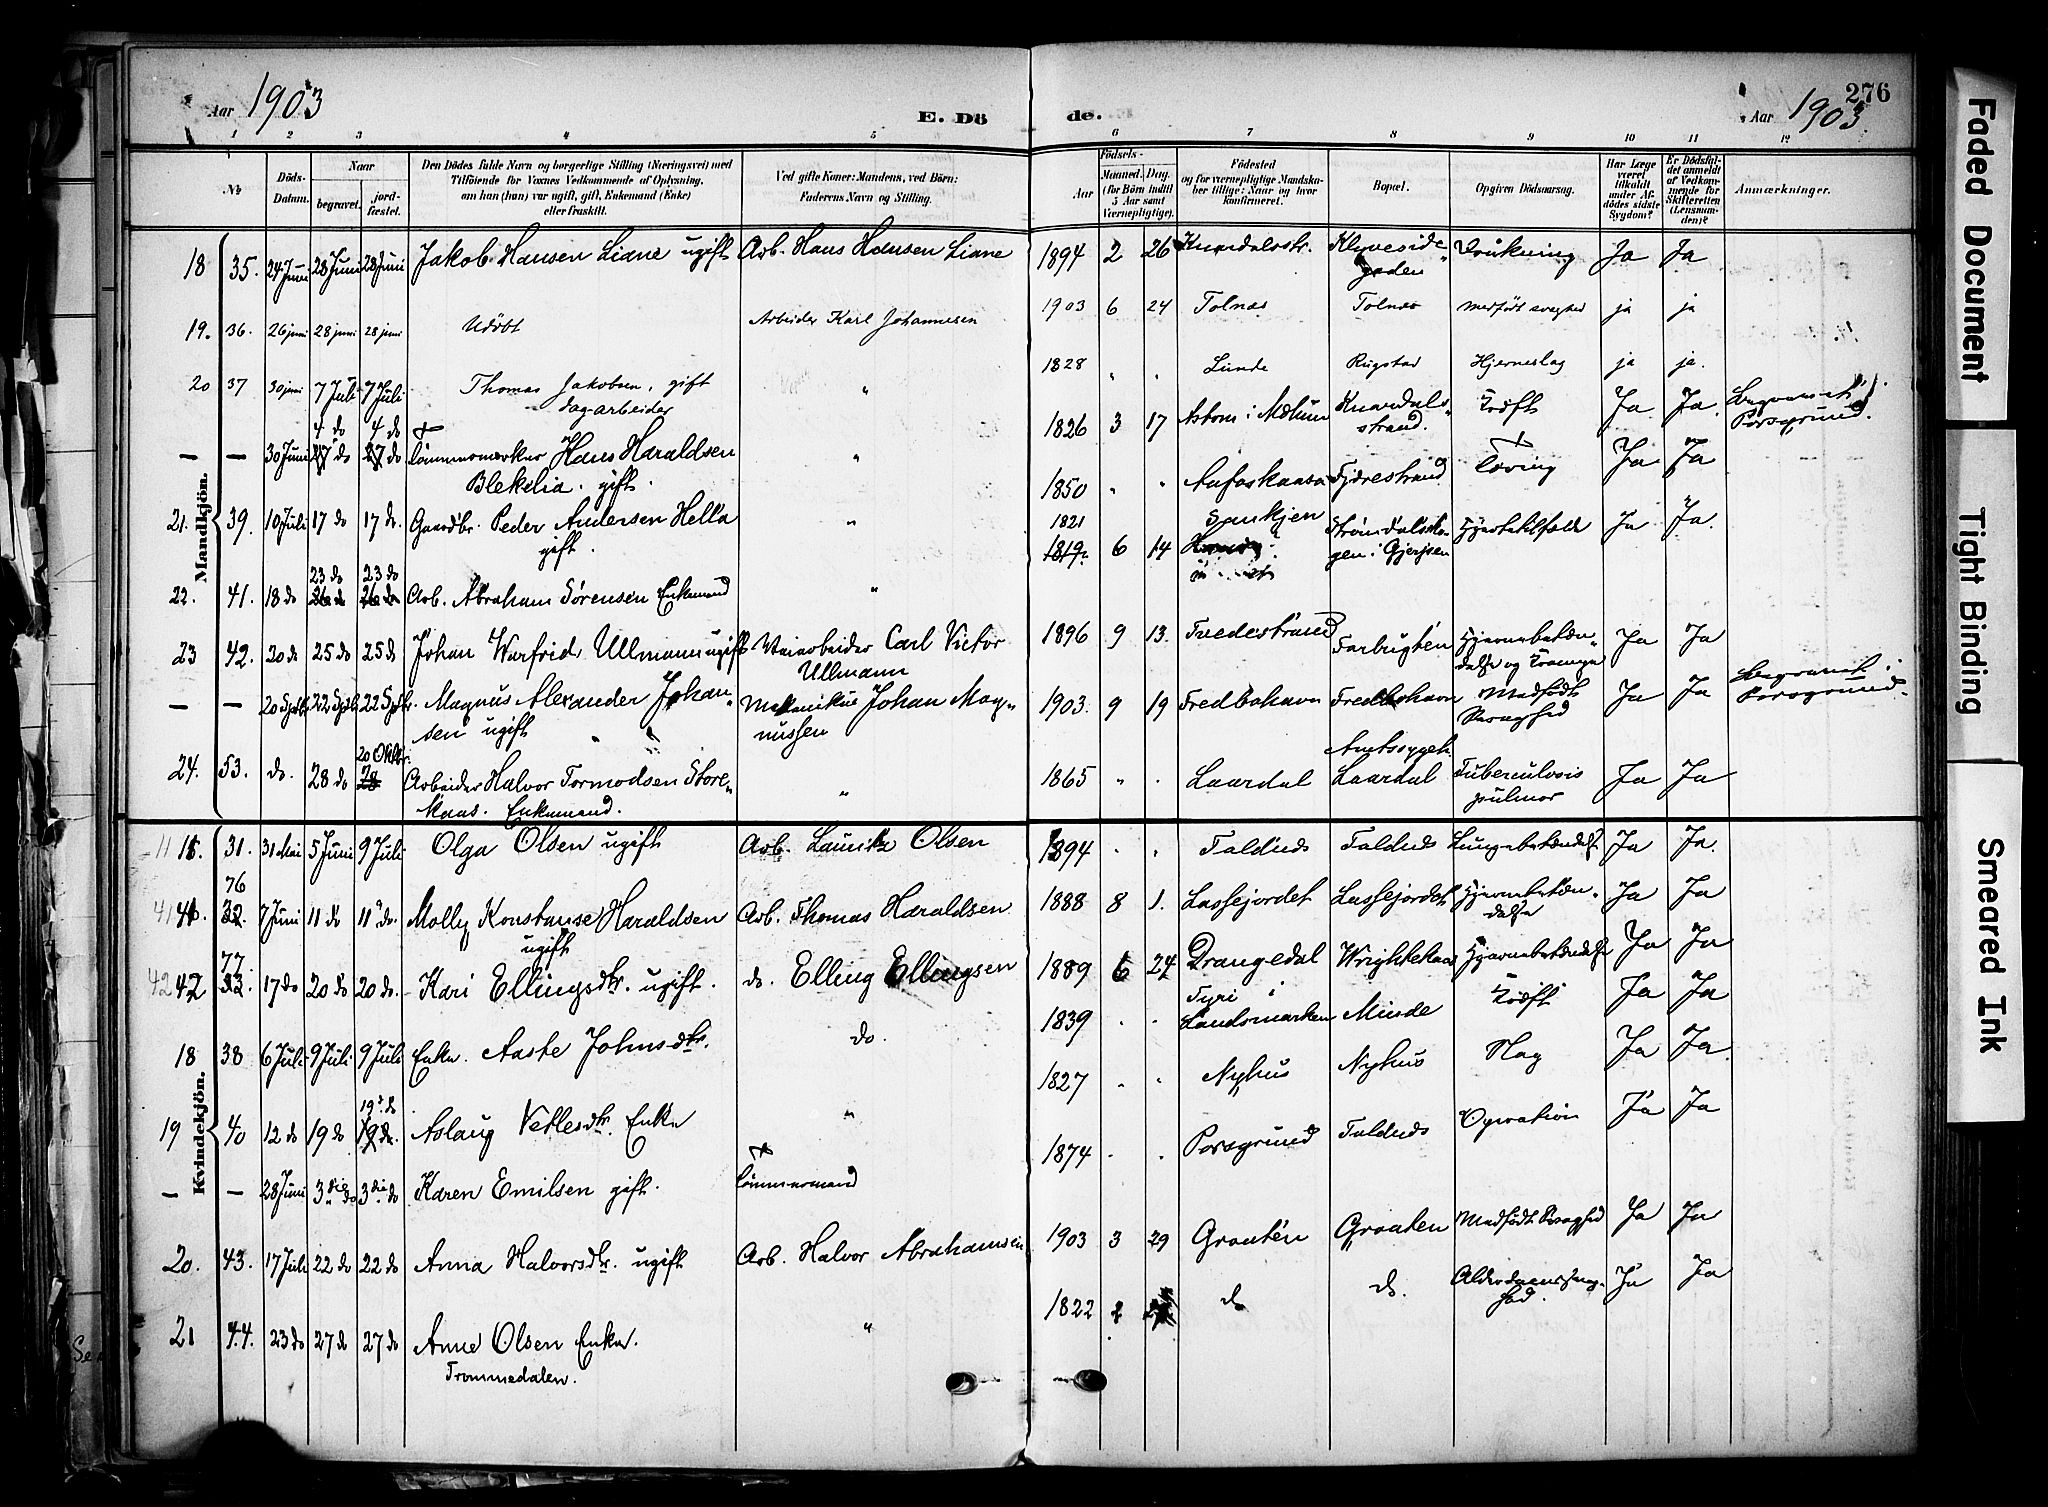 Aar 1903
E. Dö
de.
276
Aar 1903
1 2 3 4 5 6 7 8 9 10 11 12
No
Döds-
Datum.
Naar
begravet.
jord-
fæstet.
Den Dödes fulde Navn og borgerlige Stilling (Næringsvei) med
Tilföiende for Voxnes Vedkommende af Oplysning,
om han (hun) var ugift, gift, Enkemand (Enke)
eller fraskilt.
Ved gifte Koner: Mandens, ved Börn:
Faderens Navn og Stilling.
Födsels-
Aar
Maaned. Dag.
(for Börn indtil
5 Aar samt
Værnepligtige).
Födested
og for værnepligtige Mandska-
ber tillige: Naar og hvor
konfirmeret.
Bopæl.
Opgiven Dödsaarsag.
Har Læge
været
tilkaldt
under Af-
dödes sidste
Sygdom?
Er Dödsfal-
det anmeldt
af Vedkom-
mende for
Skifteretten
(Lensman-
den)?
Anmærkninger.
Mandkjön.
18 35. 24 Juni 28 Juni 28 Juni Jakob Hansen Liane ugift Arb. Hans Hansen Liane 1894 2 26 Knardalsstr. Klyveside- Drukning Ja Ja
gaden
19. 36. 26 juni 28 juni 28 juni Udøbt Arbeider Karl Johannesen 1903 6 24 Tolnæs Tolnæs medfødt svaghed ja ja
20 37 30 juni 7 Juli 7 Juli Thomas Jakobsen, gift " 1828 " " Lunde Rugstad Hjerneslag ja ja.
dagarbeider
4 do 4 do
— — 30 Juni 27 do 27 do Tømmermærker Hans Haraldsen " 1826 3 17 i Mælum Knardals- Kræft Ja Ja Begravet i
Blekelia. gift. strand. Porsgrund.
21. 39. 10 Juli 17 do 17 do. Gaardbr. Peder Andersen Hella " 1850 " " Fjærestrand Tæring Ja Ja
gift.
23 do 23 do
22. 41. 18 do 26 do 26 do Arb. Abraham Sørensen Enkemand " 1821
1819. 6 14 Gjerpen Hjertetilfælde Ja Ja.
23 42. 20 do 25 do 25 do Johan Warfrid Ullmann ugift Veiarbeider Carl Victor 1896 9 13. Tvedestrand Farbugten Hjernebetæn-
Ullmann delse og Krampe Ja Ja
— — 20 Sptbr 22 Sptb. 22 Sptbr. Magnus Alexander Johan- Mekanikus Johan Mag- 1903. 9 19 Fredbohavn Fredbohavn Medfødt Ja Ja Begravet i
sen ugift nussen Svaghed Porsgrund.
20 Oktbr.
24. 53. do. 28 do 28 Arbeider Halvor Tormodsen Store- " 1865 " " Laardal Laardal Tuberculosis Ja Ja
Enkemand. Amtssygeh. pulmor
Kvindekjön.
11 15. 31. 31 Mai 5 Juni 9 Juli Olga Olsen ugift Arb. Lauritz Olsen 1894 " " Faldnæs Faldnæs Lungebetændelse Ja Ja.
76
41 41. 32. 7 Juni 11 do 11 do. Molly Konstanse Haraldsen Arb. Thomas Haraldsen 1888 8 1. Lassejordet Lassejordet Hjernebetæn- Ja Ja
ugift delse
77
42 42 33. 17 do 20 do 20 do. Kari Ellingsdtr. ugift. do. Elling Ellingsen 1889 6 24 Drangedal Hjernebetændelse Ja Ja
18 38 6 Juli 9 Juli 9 Juli Enke. Aaste Johnsdtr. do. 1839 " " Fyri i Kræft Ja Ja
Landsmarken Minde
19 do
19 40 12 do 19 do 19 do. Aslaug Vetlesdtr. Enke " 1827 " " Nyhus Nyhus Slag Ja Ja.
— — 28 Juni 3die do 3die do Karen Emilsen gift. Tømmermand 1874 " " Porsgrund Faldnæs Operation Ja Ja
20. 43. 17 Juli 22 do 22 do Anna Halvorsdtr. ugift Arb. Halvor Abrahamsen 1903 3 29 Graaten Graaten Medfødt Svaghed Ja Ja
21 44. 23 do 27 do 27 do Anne Olsen Enke. " 1822 2 do do. Alderdomssvag- Ja Ja
Trommedalen. hed.
Faded Document
Tight Binding
Smeared Ink